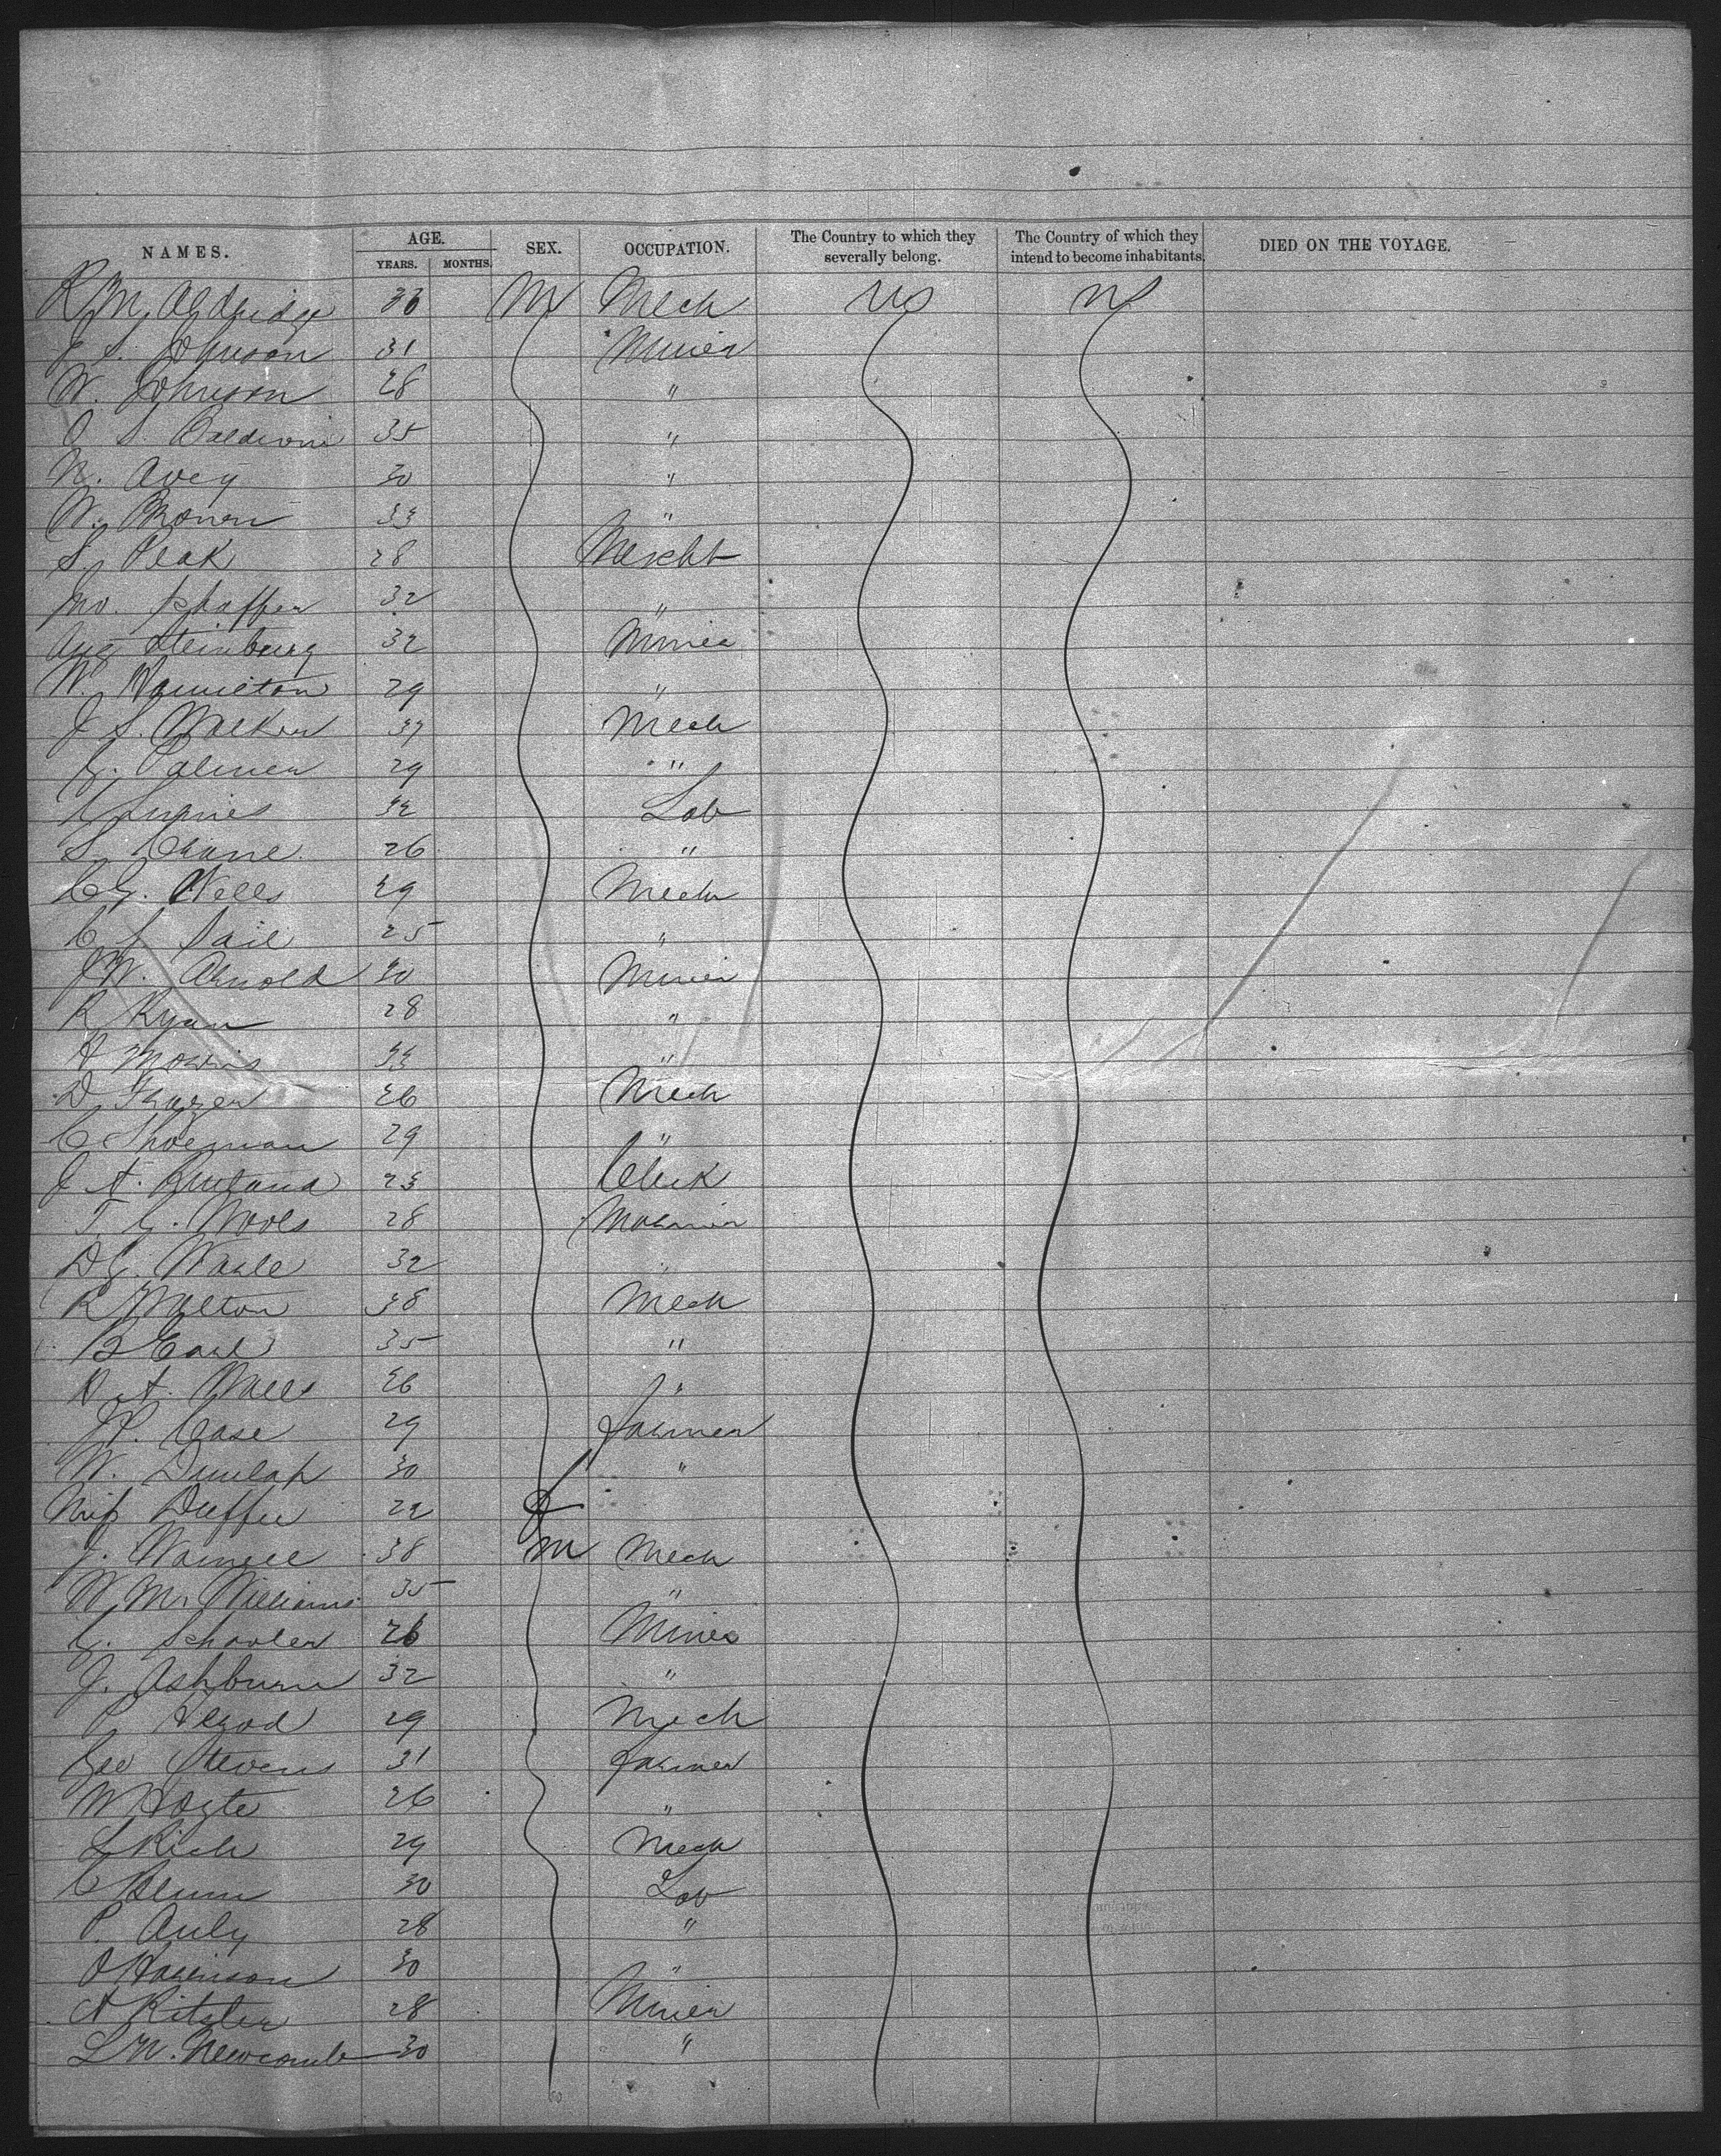 NAMES. AGE. YEARS. MONTHS. SEX. OCCUPATION. The Country to which they severally belong. The Country of which they intend to become inhabitants. DIED ON THE VOYAGE.
R M Aldridge 33 M Mech US US
J S. Johnson 31 Miner
W. Johnson 28 "
O S. Baldwin 35 "
N. Avey 30 "
W. Brown 33 "
S. Peak 28 Mercht
Jno. Schaffer 32 "
Aug Steinburg 32 Miner
W. Hamilton 29 "
J S. Walker 37 Mech
G. Palmer 29 "
32 Lab
S. Crane 26 "
C G. Wells 29 Mech
C S Sail 25 "
J W. Arnold 30 Miner
R Ryan 28 "
A Morris 33 "
D Frazer 26 Mech
C Shoeman 29 "
J A. 23 Clerk
T. G. Wools 28
D G. 32 "
R Walton 38 Mech
B Earl 35 "
A. Wells 26 "
J P. Case 29 Farmer
W. Dunlap 30 "
Miss Duffee 22 F
J. 38 M Mech
W M. Williams 35 "
G. Schooler 26 Miner
J. Ashburn 32 "
P. 29 Mech
Geo Stevens 31 Farmer
W Hoyte 26 "
L Rich 29 Mech
C Blum 30 Lab
P. Auly 28 "
O Harrison 30 "
A Ritzler 28 Miner
L W. Newcomb 30 "